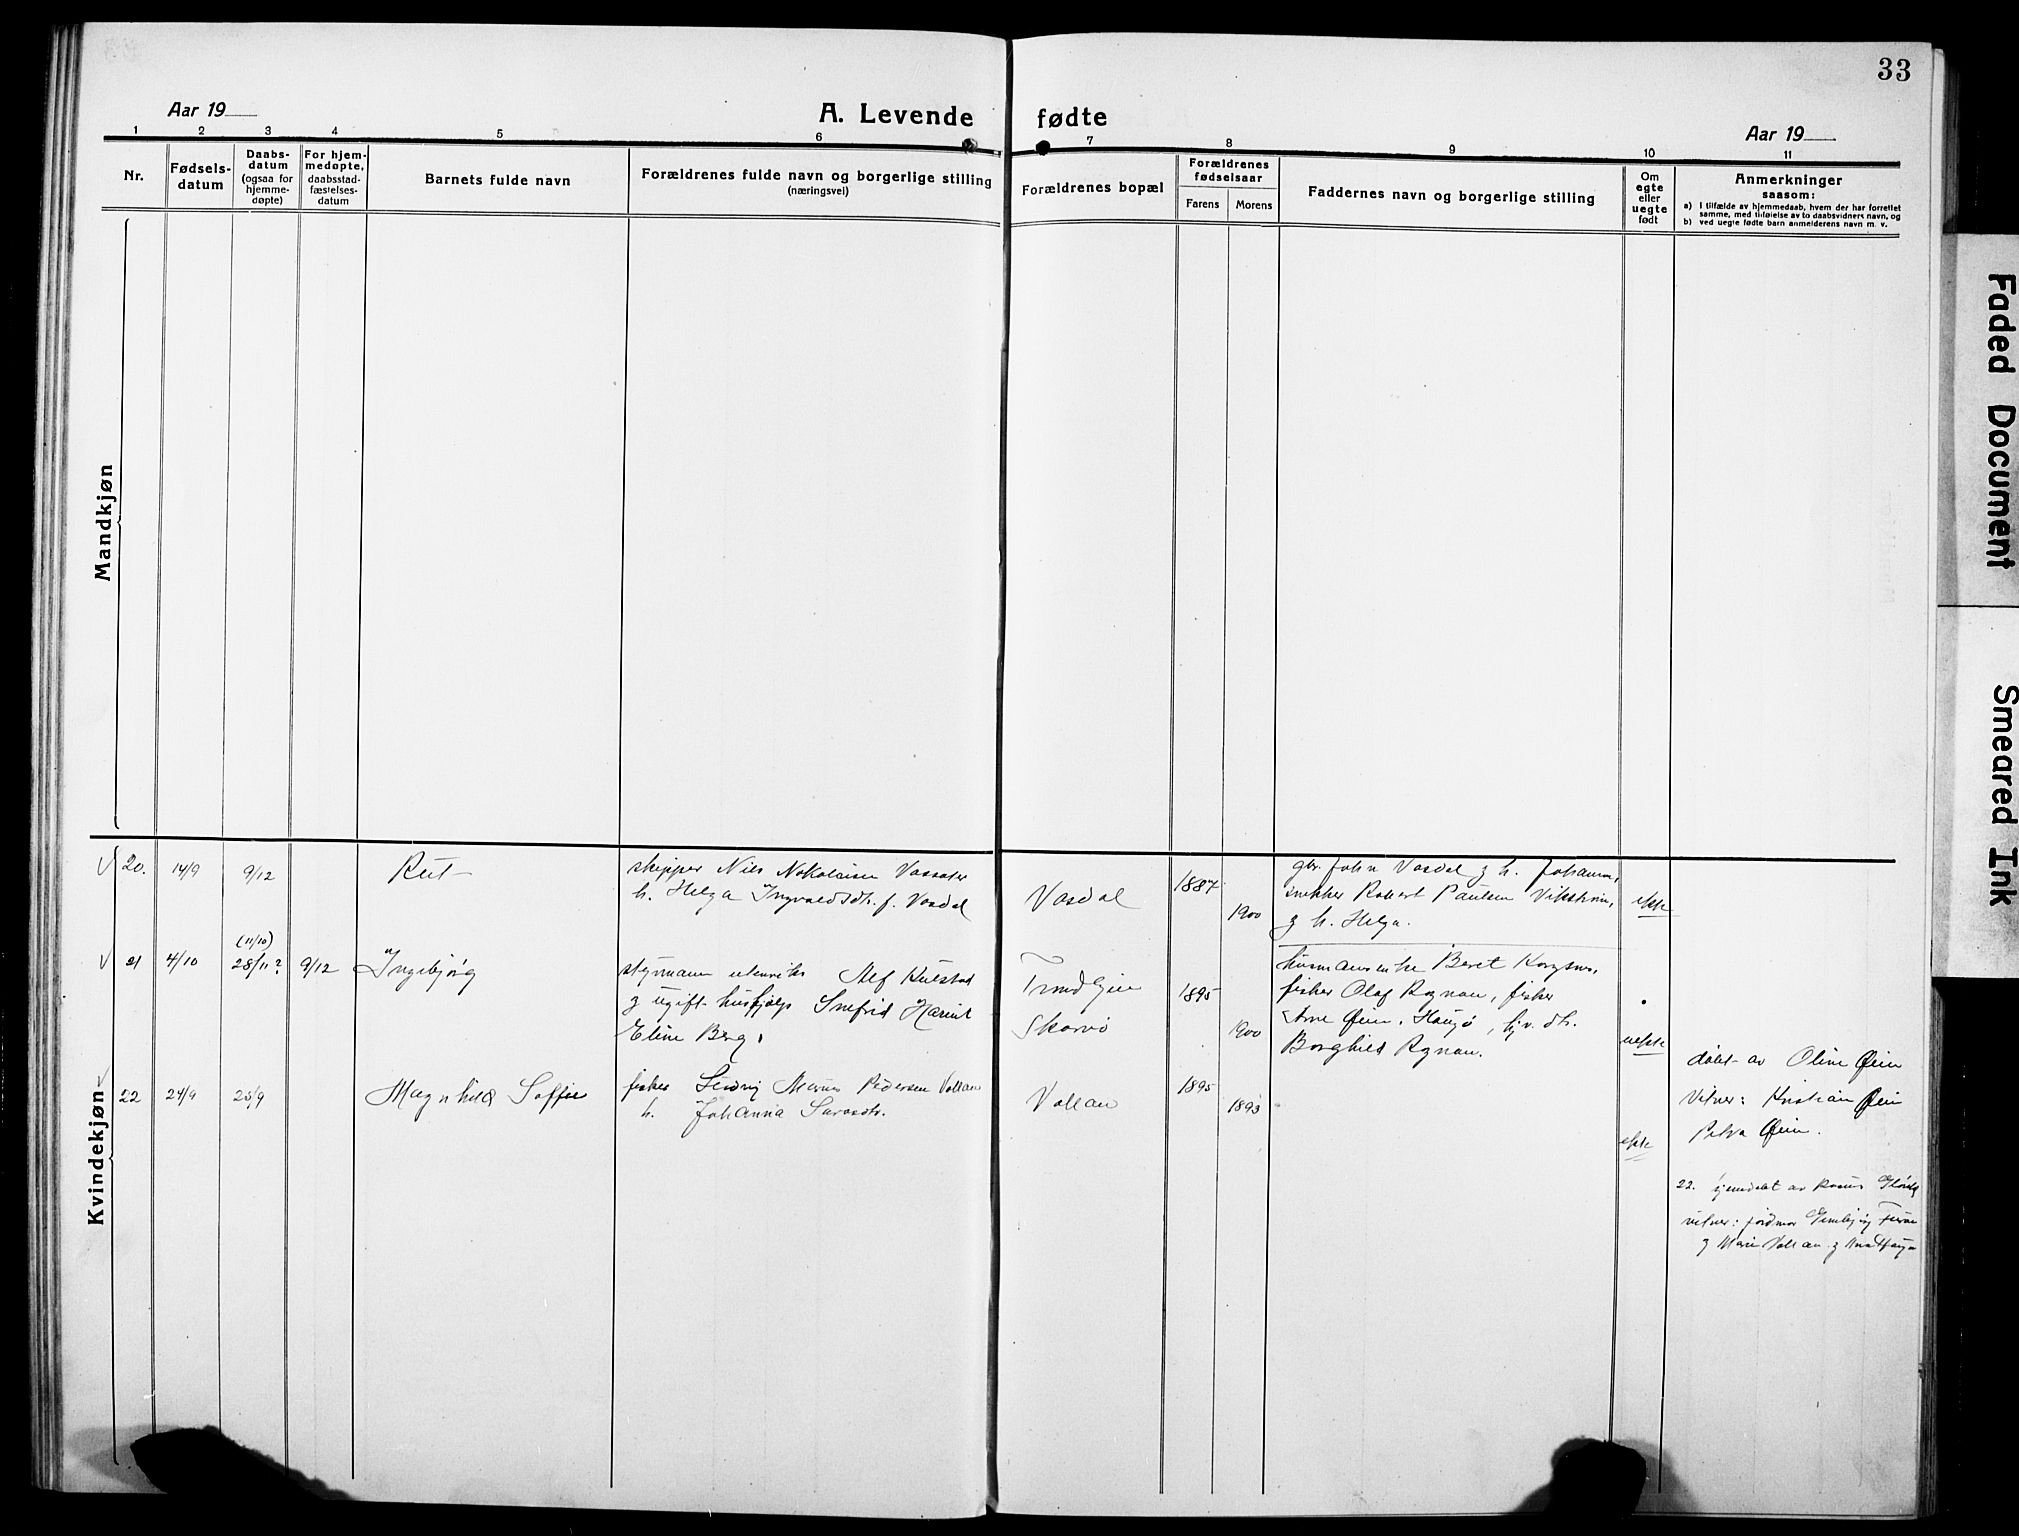 33
Aar 19
A. Levende fødte
Aar 19
1 2 3 4 5 6 7 8 9 10 11
Nr.
Fødsels-
datum
Daabs-
datum
(ogsaa for
hjemme-
døpte)
For hjem-
medøpte,
daabsstad-
fæstelses-
datum
Barnets fulde navn
Forældrenes fulde navn og borgerlige stilling
(næringsvei)
Forældrenes bopæl
Forældrenes
fødselsaar
Farens Morens
Faddernes navn og borgerlige stilling
Om
egte
eller
uegte
født
Anmerkninger
saasom:
a) I tilfælde av hjemmedaab, hvem der har forrettet
samme, med tilføielse av to daabsvidners navn, og
b) ved uegte fødte barn anmelderens navn m. v.
Mandkjøn
Kvindekjøn
20. 14/9 9/12 Rut
skipper Nils Nikolaisen
h. Helga Ingvaldsdtr. f. Vasdal
Vasdal 1887 1900
gbr. John Vasdal g h. Johanna,
snekker Robert Paulsen Vikstrøm,
g h. Helga.
ekte
21 4/10 (11/10) 28/11? 9/12 Ingebjørg
styrmann utenriks Alf Kulstad
g ugift hushjelp Snefrid
Eline Berg.
Trondhjem
Skorvø
1895 1900
Beret
fisker Olaf Rognan, fisker
Arne Øien, Haugø,
Borghild Rognan.
uekte
døbt av Oline Øien
Vitner: Kristian Øien
Petra Øien.
22 24/9 25/9 Magnhild Soffie
fisker Pedersen Vollan
h. Johanna
Vollan 1895 1893
ekte
22. hjemdøbt av
vitner: jordmor
g Marie Vollan g
Faded Document
Smeared Ink